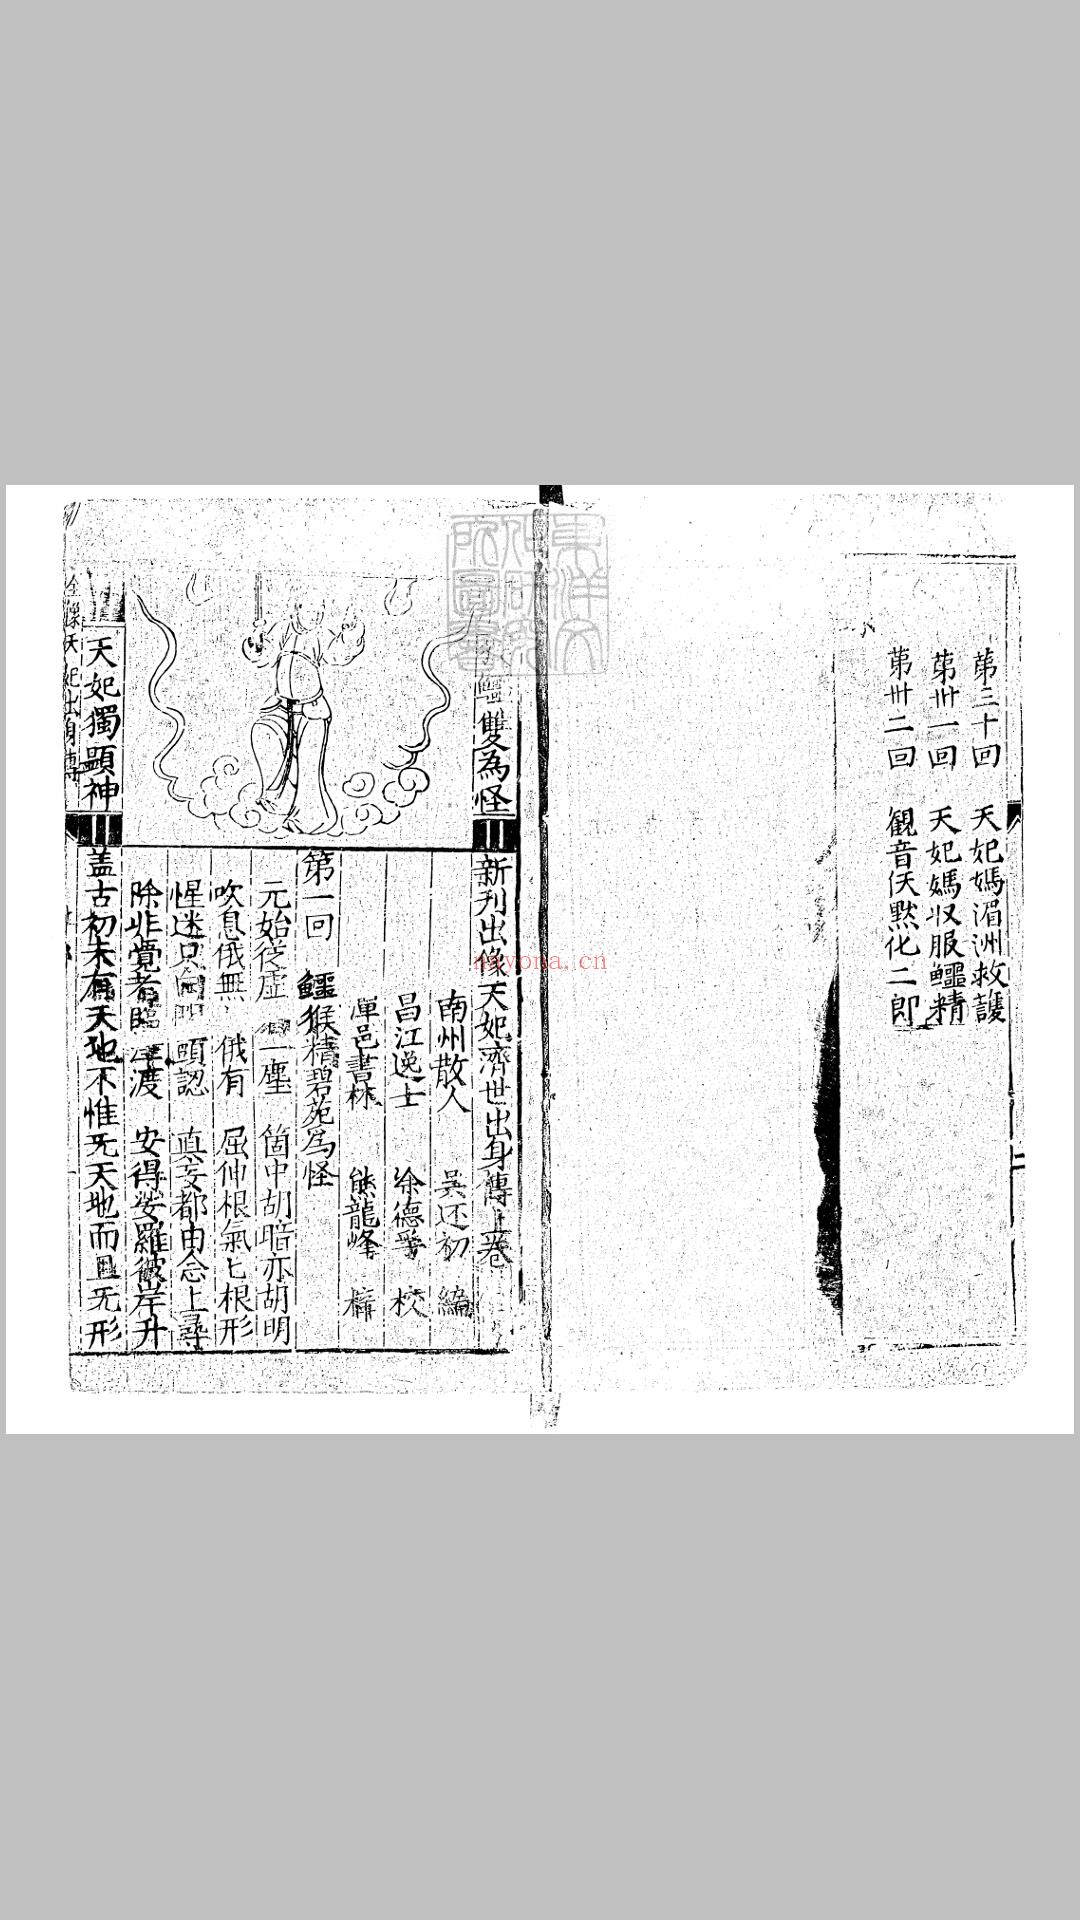 第三十回　天妃媽湄洲救護
第卅一回　天妃媽收服鱷精
第卅二回　觀音佛點化二郎
雙為怪
天妃獨顯神
新刊出像天妃濟世出身傳上卷
南州散人　吳还初　編
昌江逸士　徐德孚　校
潭邑書林　熊龍峰　梓
第一回　鱷猴精碧苑為怪
元始從虛　一塵　箇中胡暗亦胡明
吹息俄無　俄有　屈伸根氣匕根形
惺迷只向　頭認　真妄都由念上尋
除非覺者臨　渡　安得娑羅彼岸升
盖古初未有天地不惟旡天地而且旡形
全像天妃出身傳
nayona.cn